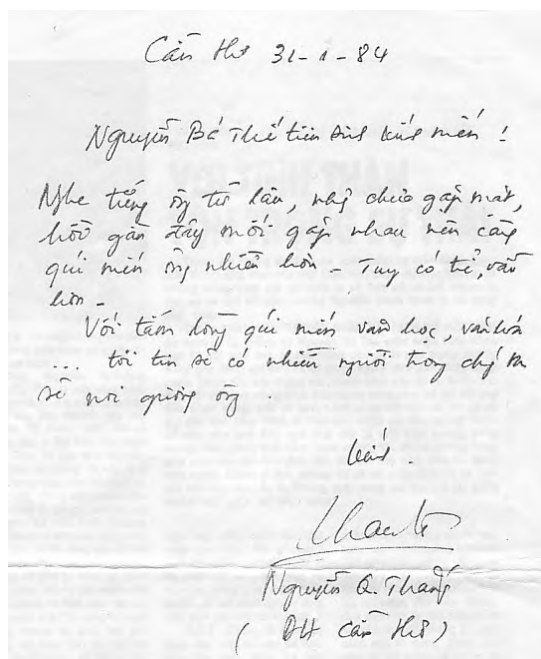 Cần Thơ 31-1-84
Nguyễn Bá Thế tiên sinh kính mến !
Nghe tiếng ông từ lâu, nhưng chưa gặp mặt,
hồi gần đây mới gặp nhau nên càng
quí mến ông nhiều hơn - Tuy có trễ, vẫn
hơn -
Với tấm lòng quí mến văn học, văn hóa
... tôi tin sẽ có nhiều người trong chúng ta
sẽ noi gương ông .
Kính .
Nguyễn Q. Thắng
( ĐH Cần Thơ )